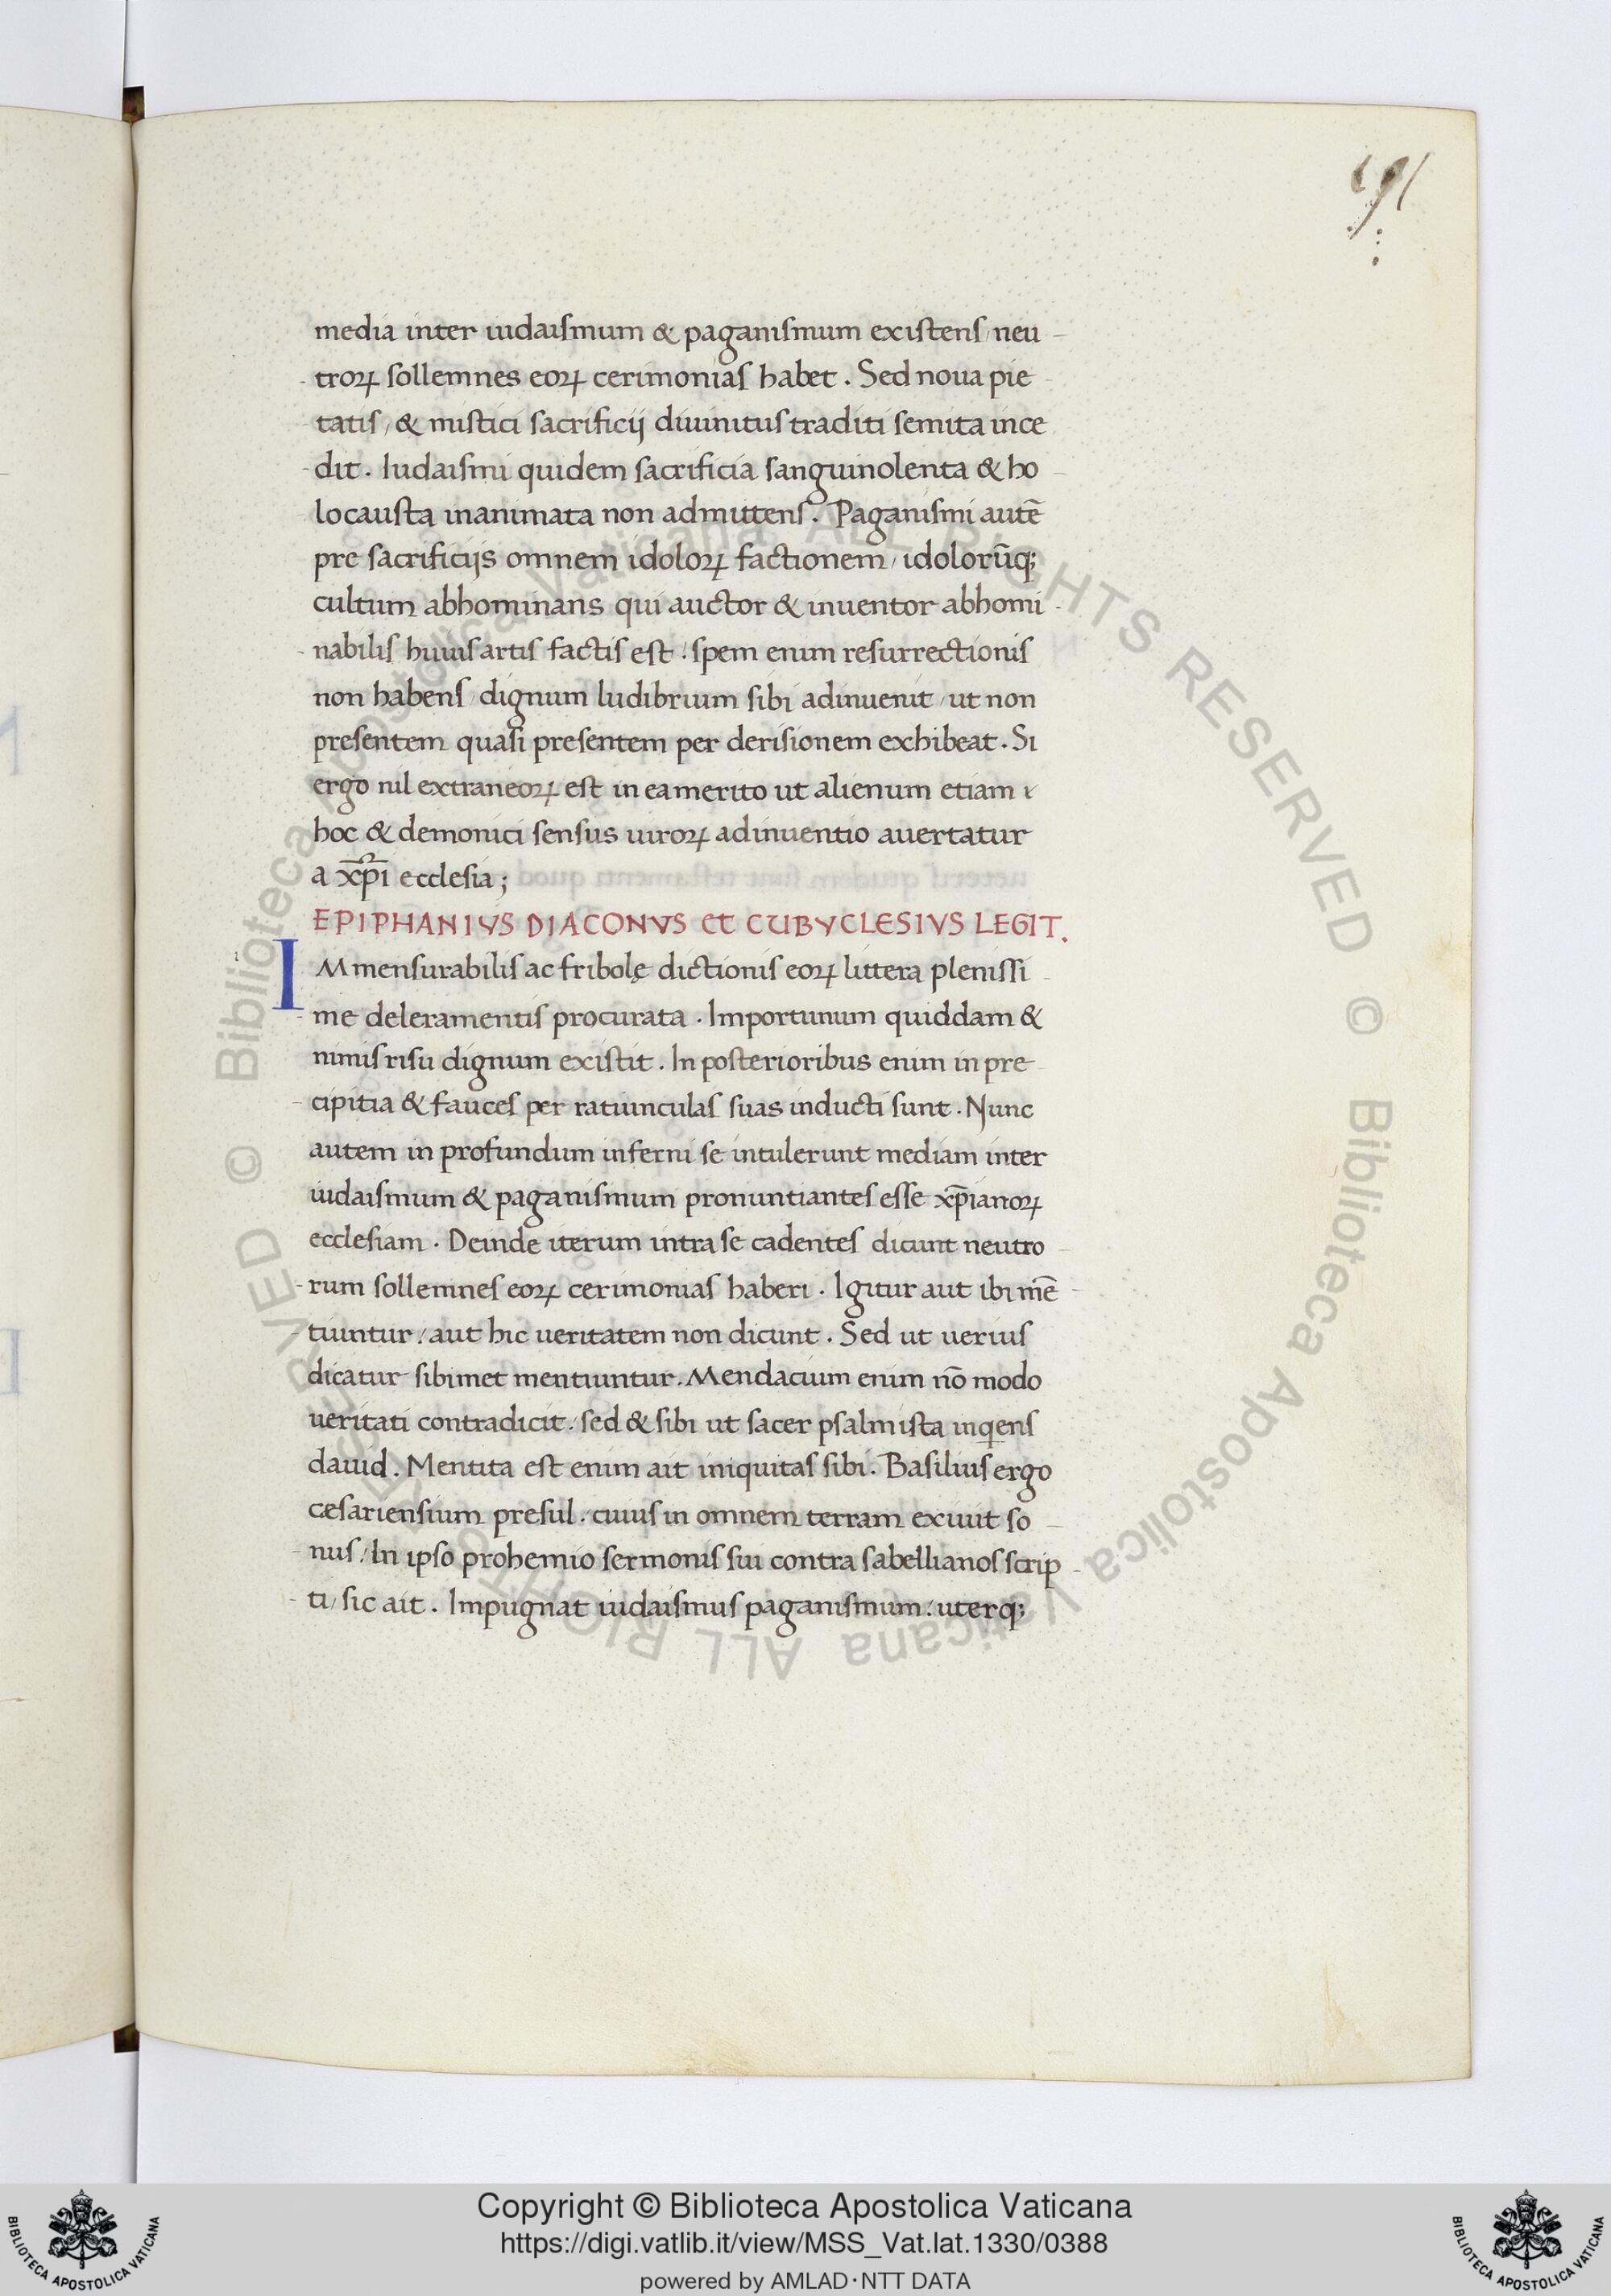 191
media inter iudaismum & paganismum existens / neu
troꝝ sollemnes eoꝝ cerimonias habet . Sed noua pie
tatis / & mistici sacrificij diuinitus traditi semita ince
dit . Iudaismi quidem sacrificia sanguinolenta & ho
locausta inanimata non admittens . Paganismi autē
pre sacrificijs omnem idoloꝝ factionem / idolorūq;
cultum abhominans qui auctor & inuentor abhomi
nabilis huius artis factis est : spem enim resurrectionis
non habens / dignum ludibrium sibi adinuenit / ut non
presentem quasi presentem per derisionem exhibeat . Si
ergo nil extraneoꝝ est in ea merito ut alienum etiam
hoc & demonici sensus uiroꝝ adinuentio auertatur
a xp̄i ecclesia ;
EPIPHANIVS DIACONVS et CUBVCLESIVS LEGIT .
IMmensurabilis ac fribolę dictionis eoꝝ littera plenissi
me deleramentis procurata . Importunum quiddam &
nimis risu dignum existit . In posterioribus enim in pre
cipitia & fauces per ratiunculas suas inducti sunt . Nunc
autem in profundum inferni se intulerunt mediam inter
iudaismum & paganismum pronuntiantes esse xp̄ianoꝝ
ecclesiam . Deinde iterum intra se cadentes dicunt neutro
rum sollemnes eoꝝ cerimonias haberi . Igitur aut ibi mē
tiuntur / aut hic ueritatem non dicunt . Sed ut uerius
dicatur sibimet mentiuntur . Mendacium enim nō modo
ueritati contradicit : sed & sibi ut sacer psalmista inqens
dauid . Mentita est enim ait iniquitas sibi . Basilius ergo
cesariensium presul : cuius in omnem terram exiuit so
nus / In ipso prohemio sermonis sui contra sabellianos scrip
ti / sic ait . Impugnat iudaismus paganismum : uterq;
© Biblioteca Apostolica Vaticana ALL RIGHTS RESERVED
© Biblioteca Apostolica Vaticana ALL RIGHTS RESERVED
Copyright © Biblioteca Apostolica Vaticana
https://digi.vatlib.it/view/MSS_Vat.lat.1330/0388
powered by AMLAD・NTT DATA
BIBLIOTECA APOSTOLICA VATICANA
BIBLIOTECA APOSTOLICA VATICANA